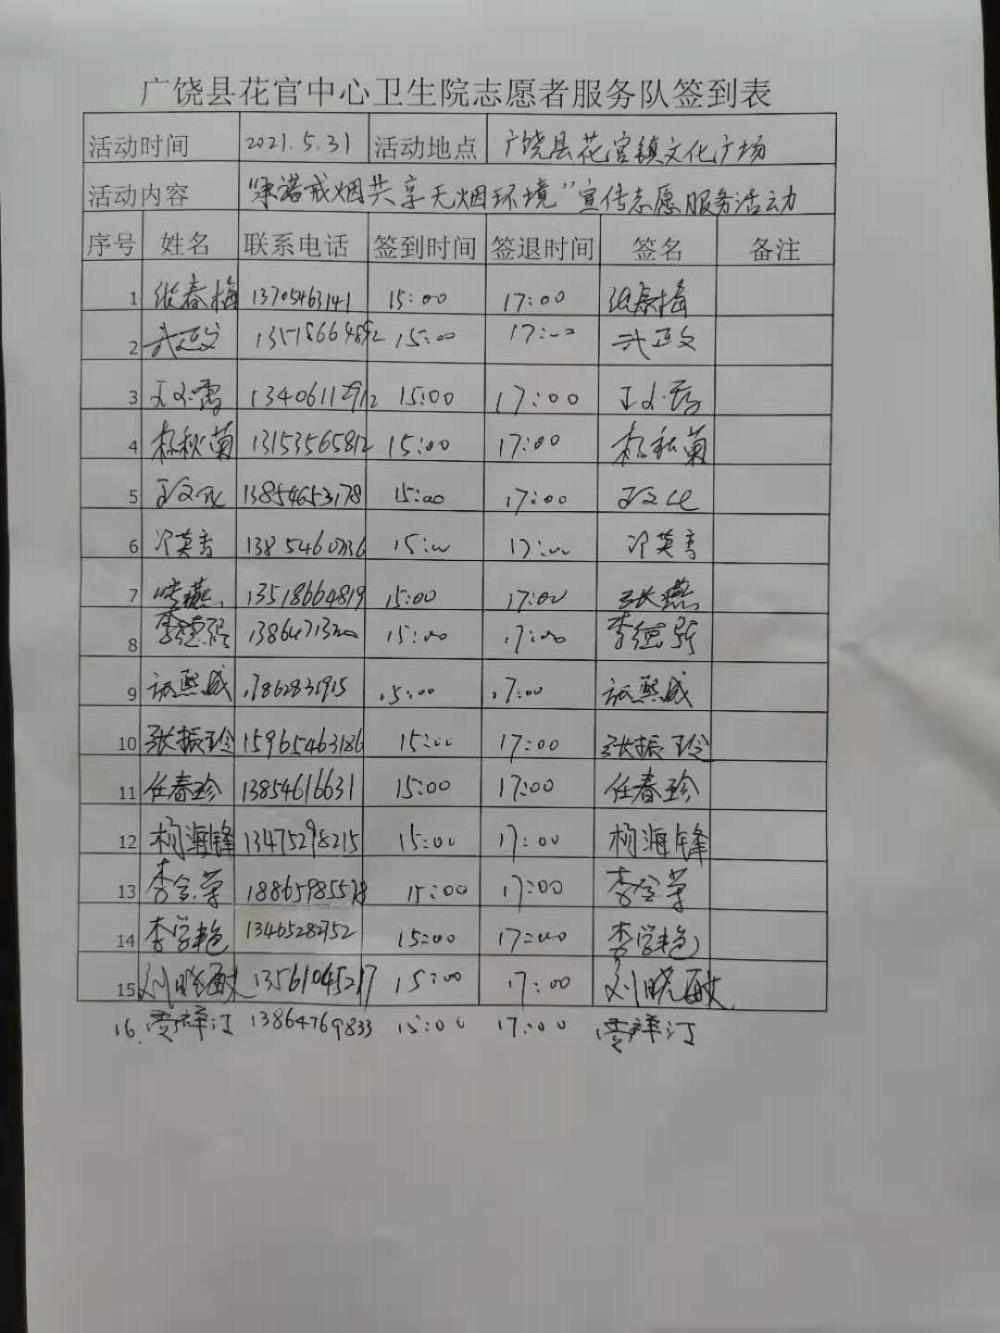 广饶县花官中心卫生院志愿者服务队签到表
活动时间 2021.5.31 活动地点 广饶县花官镇文化广场
活动内容 "承诺戒烟共享无烟环境"宣传志愿服务活动
序号 姓名 联系电话 签到时间 签退时间 签名 备注
1 张春梅 13705463141 15:00 17:00 张春梅
2 武正文 13518664892 15:00 17:00 武正文
3 13406112912 15:00 17:00
4 杨秋菊 13153565812 15:00 17:00 杨秋菊
5 13854653178 15:00 17:00
6 15:00 17:00
7 张燕 13518664819 15:00 17:00 张燕
8 李德强 15:00 17:00 李德强
9 熙威 15:00 17:00 熙威
10 张振玲 15965463186 15:00 17:00 张振玲
11 任春珍 13854616631 15:00 17:00 任春珍
12 杨海锋 13475298215 15:00 17:00 杨海锋
13 李金荣 18865985578 15:00 17:00 李金荣
14 李学艳 13465282752 15:00 17:00 李学艳
15 刘晓敏 13561045217 15:00 17:00 刘晓敏
16. 贾祥江 13864769833 15:00 17:00 贾祥江